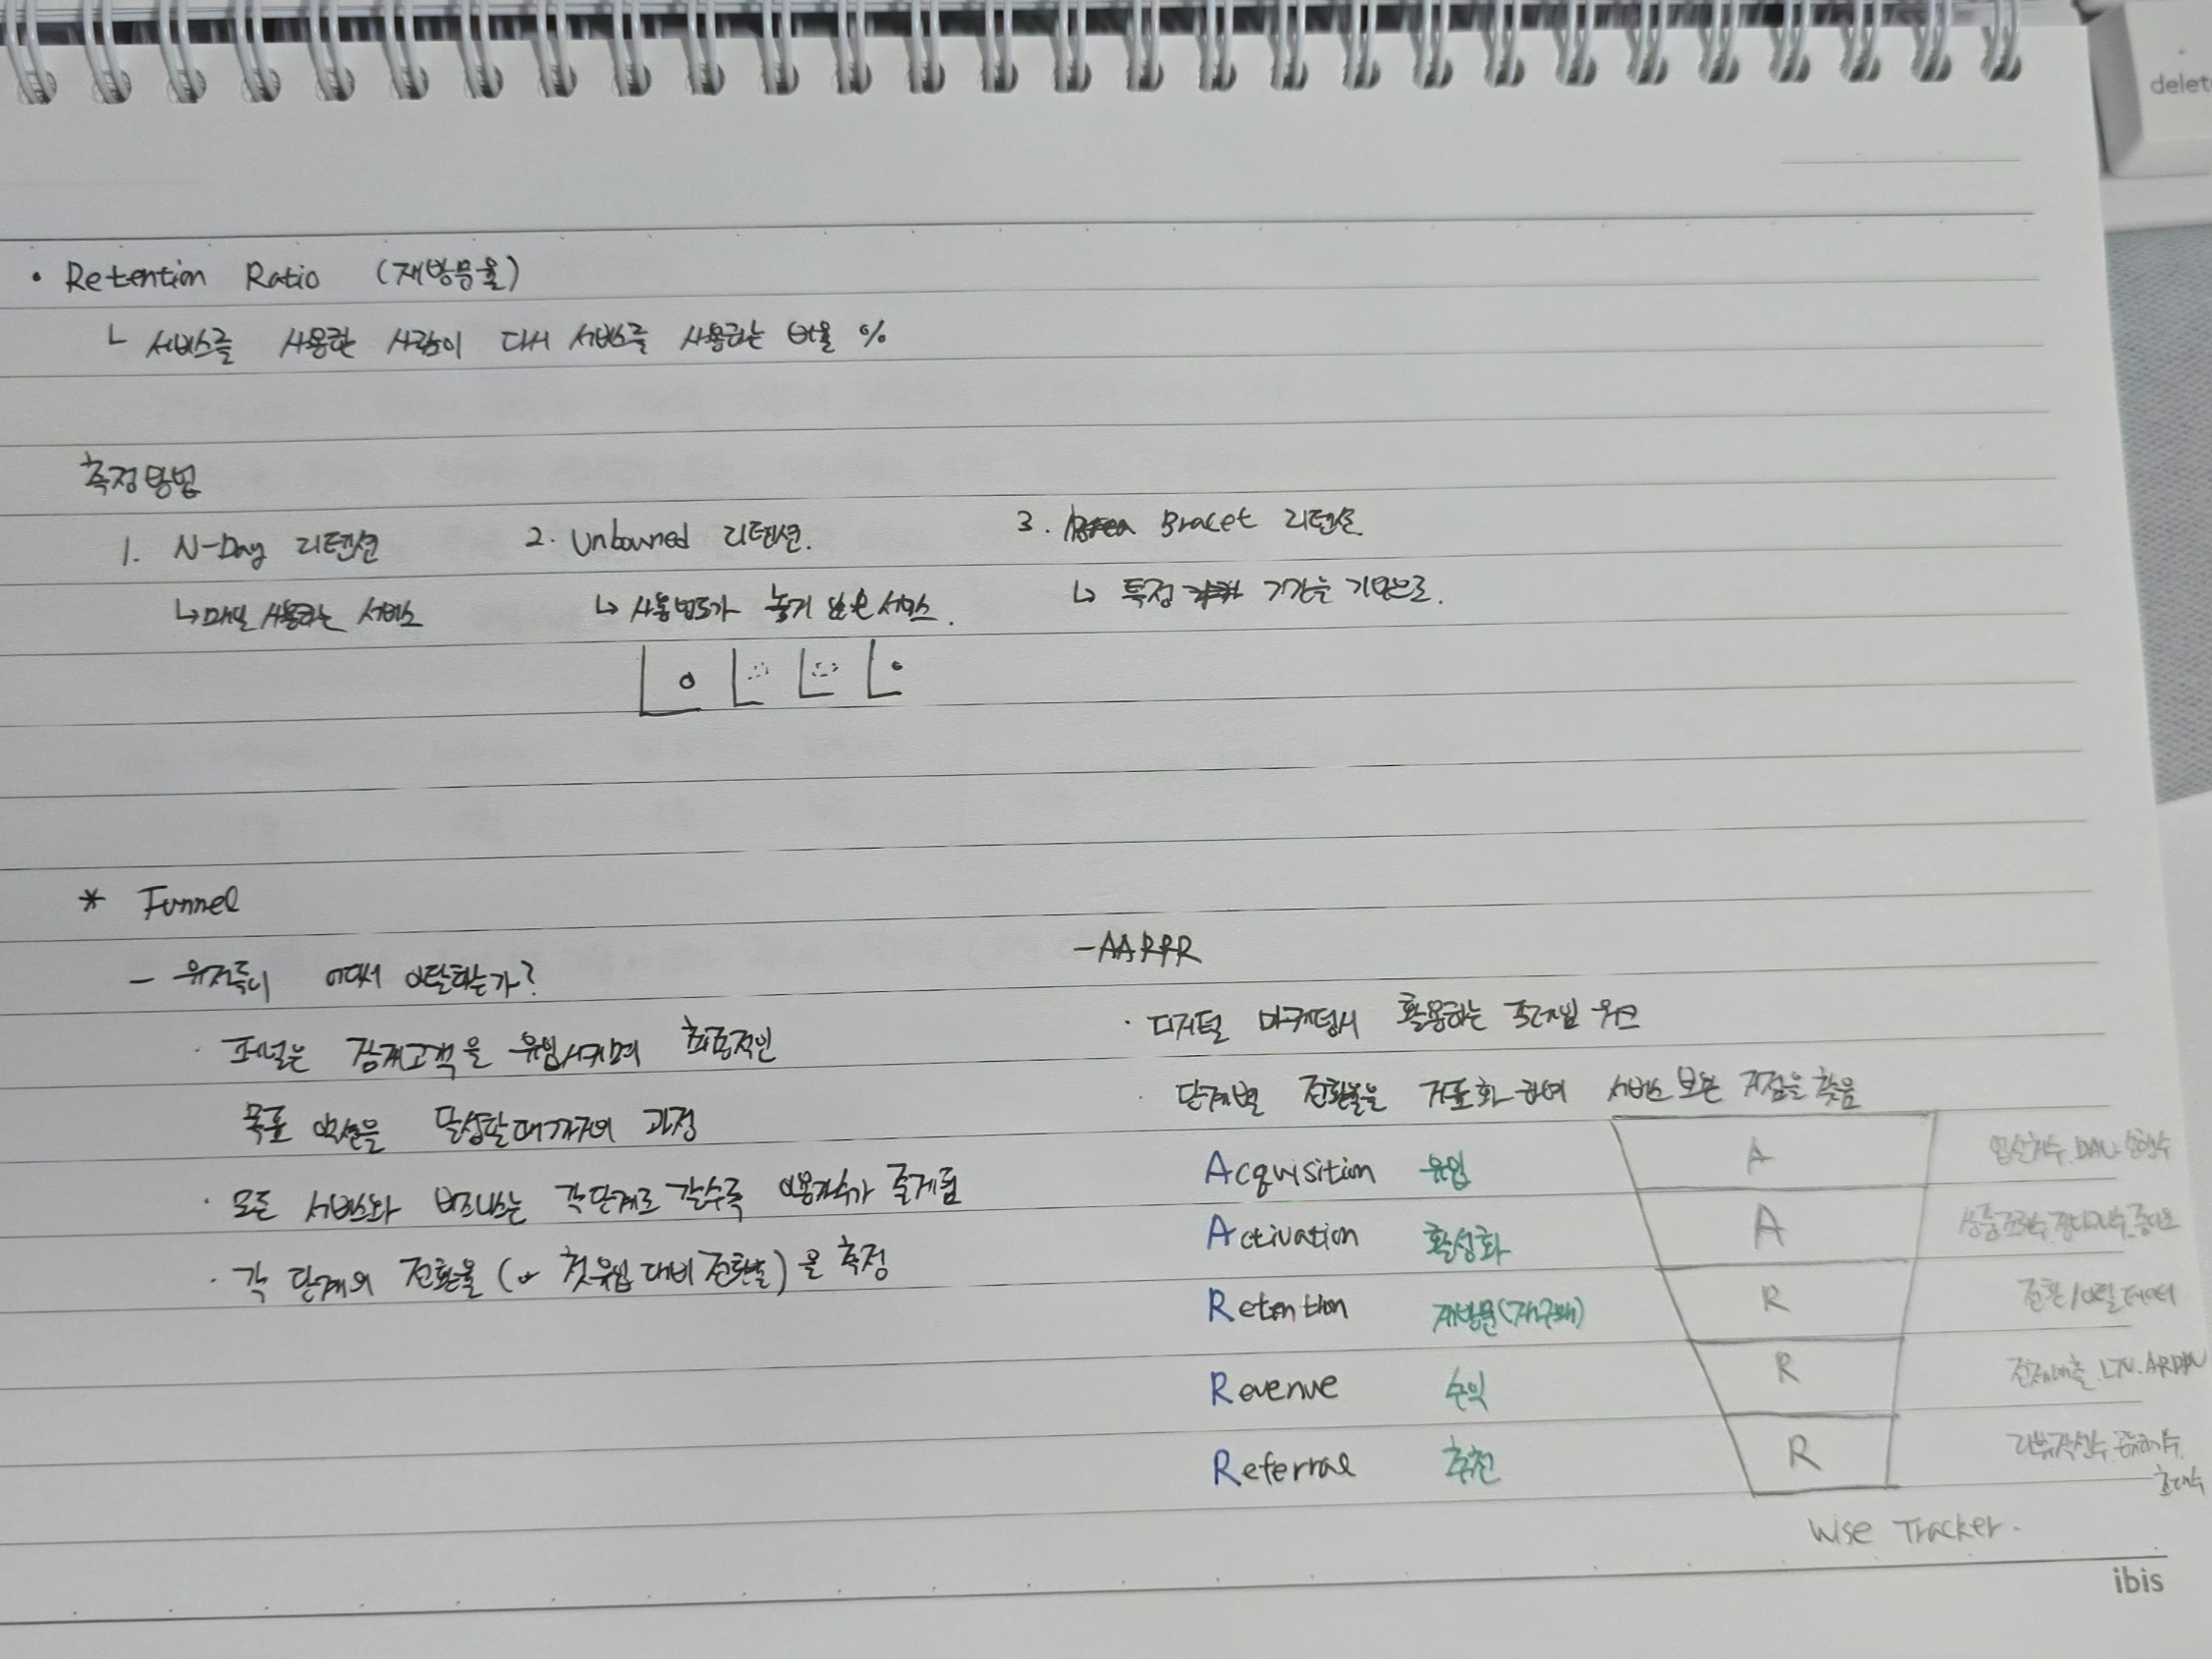 delete
• Retention Ratio (재방문율)
└ 서비스를 사용한 사람이 다시 서비스를 사용하는 비율 %
측정방법
1. N-Day 리텐션
↳ 매일 사용하는 서비스
2. Unbowned 리텐션.
↳ 사용빈도가 높지 않은 서비스.
3. Bracet 리텐션
↳ 특정 기간을 기반으로.
* Funnel
- 유저들이 어디서 이탈하는가?
· 퍼널은 잠재고객을 유입시키며 최종적인
목표 액션을 달성할때까지의 과정
· 모든 서비스와 비즈니스는 각단계로 갈수록 이용자수가 줄게됨
· 각 단계의 전환율 (or 첫유입 대비 전환율)을 측정
- AARRR
· 디지털 마케팅서 활용하는 프레임 워크
· 단계별 전환율을 지표화 하여 서비스 보완 지점을 찾음
Acquisition 유입 A DAU
Activation 활성화 A
Retention 재방문(재구매) R 전환/이탈 데이터
Revenue 수익 R LTV.
Referral 추천 R 리뷰작성수. 공유하기수.
초대수
Wise Tracker.
ibis